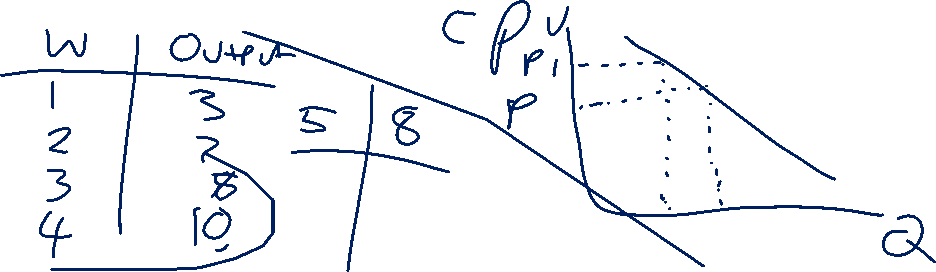 W Output
1 3
2 2
3 8
4 10
5 8
C P U
P1
P
Q